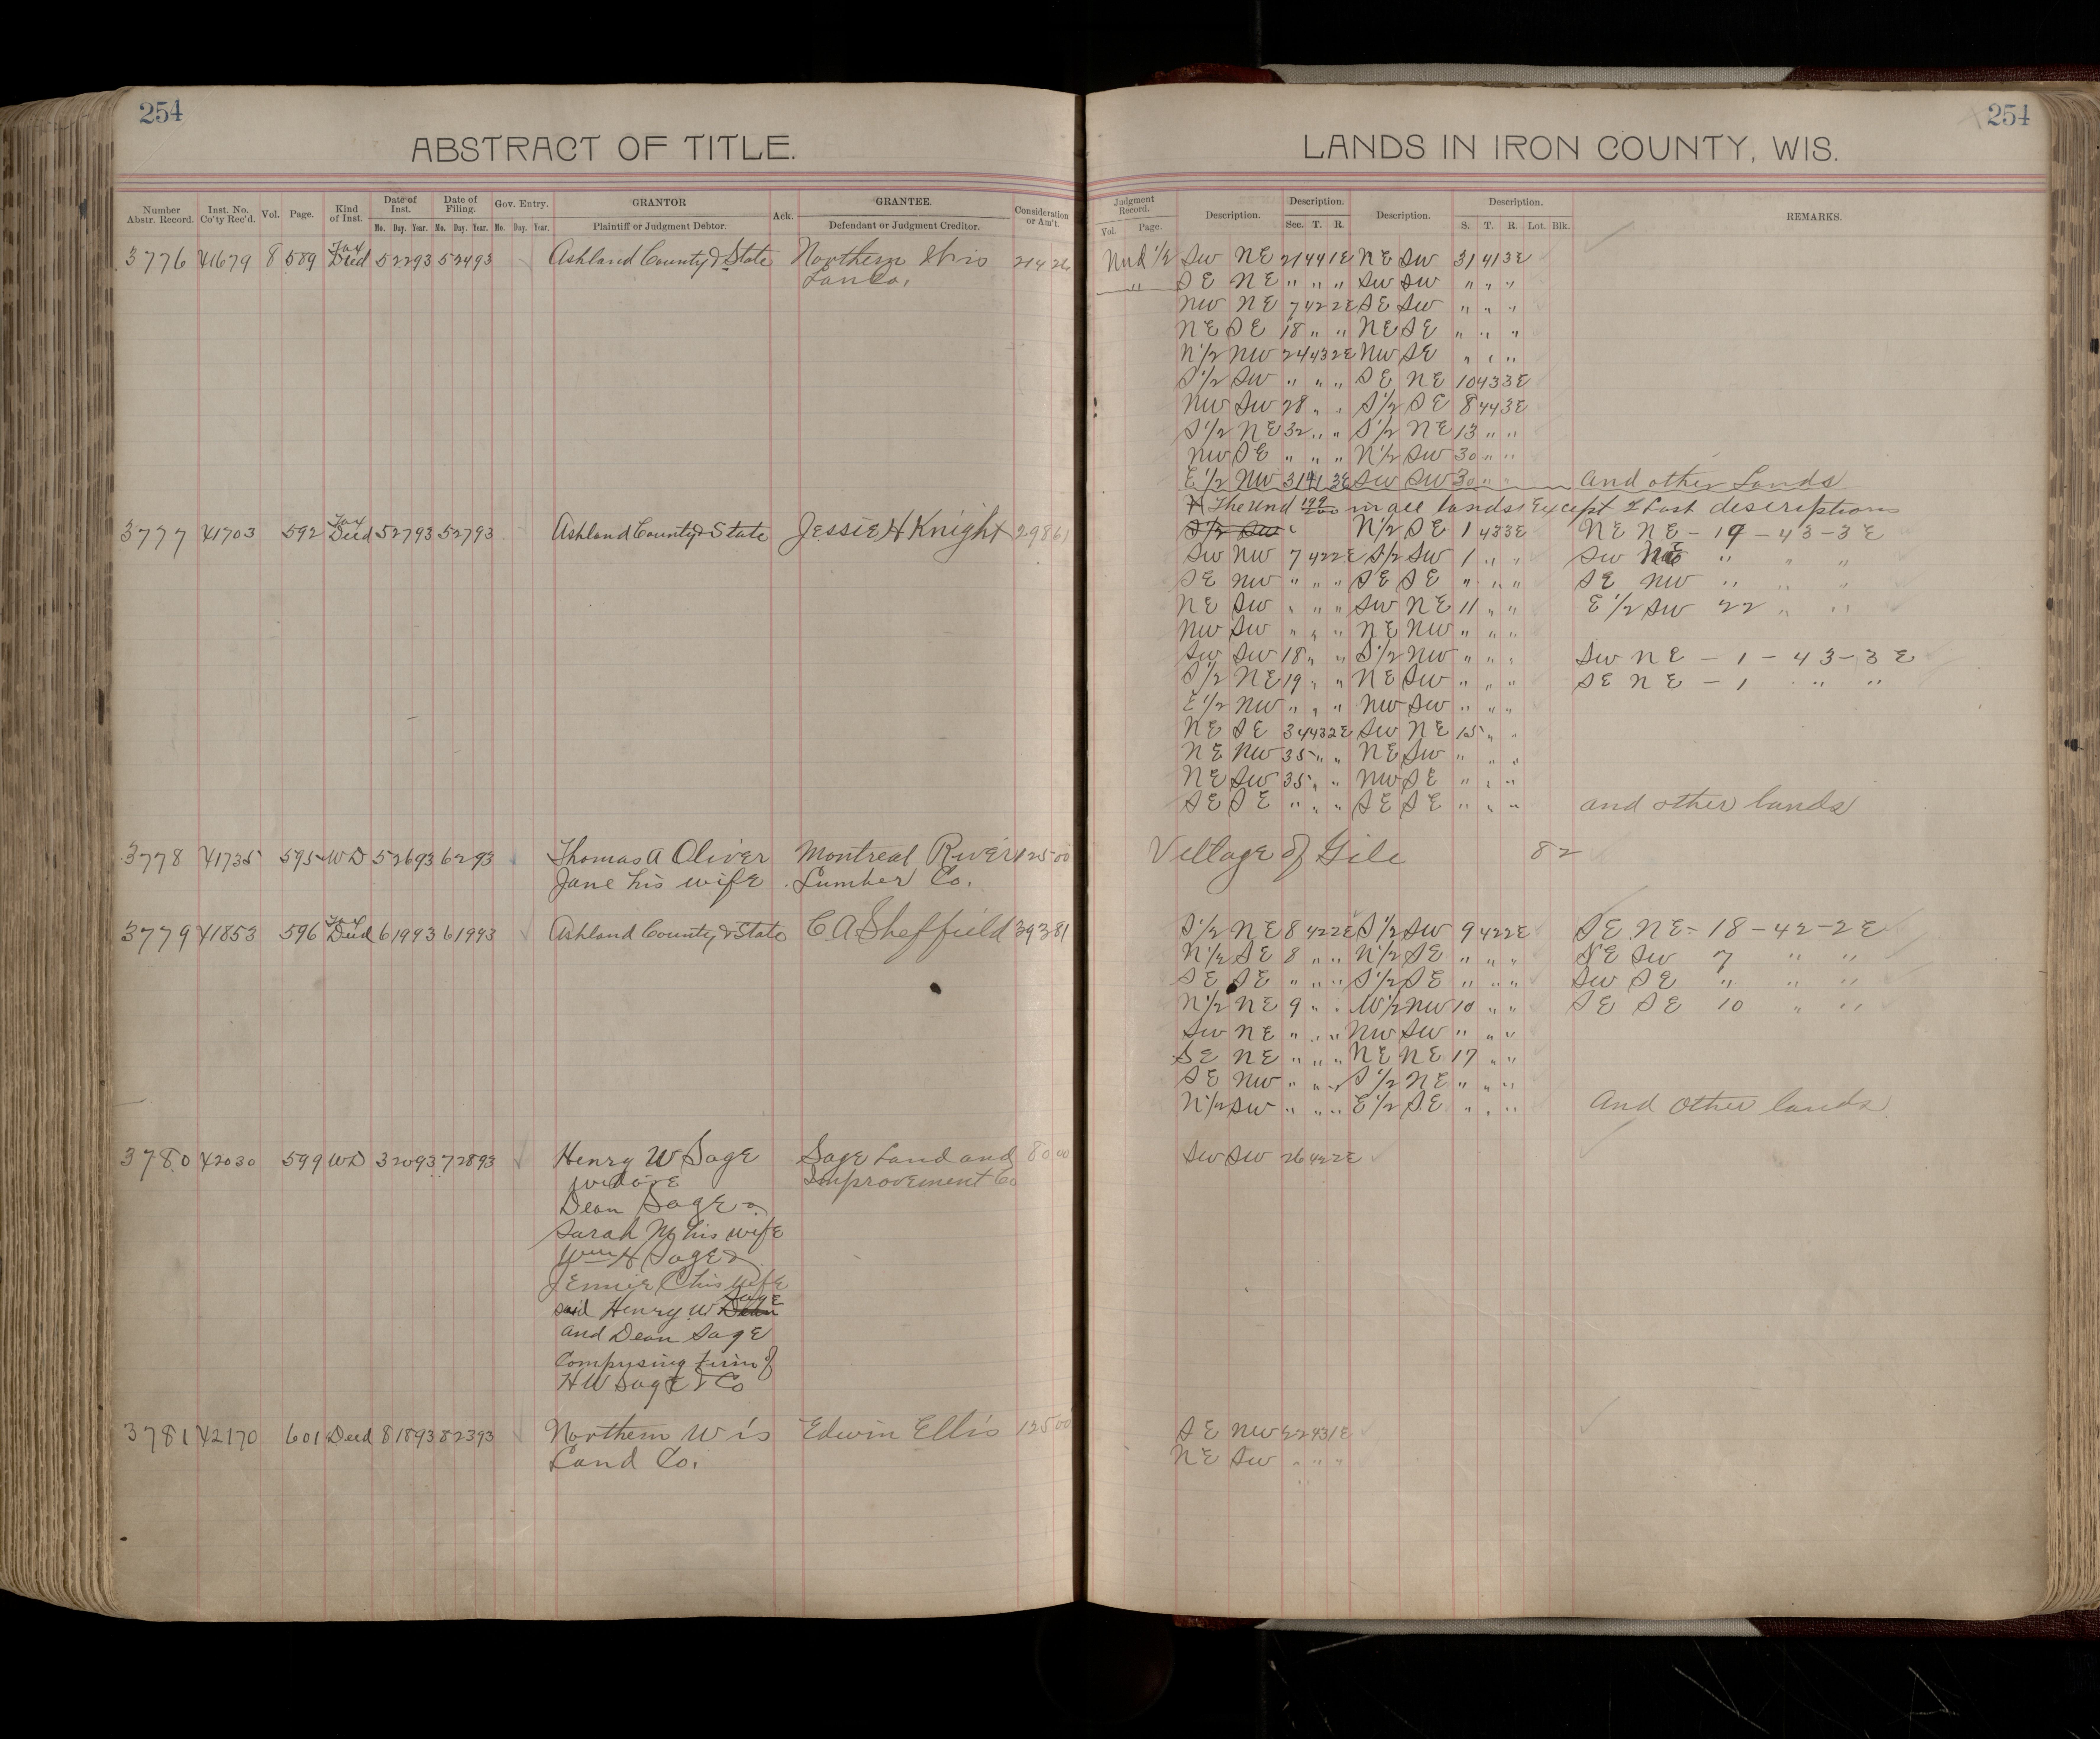 254
ABSTRACT OF TITLE.
Number Abstr. Record. Inst. No. Co'ty Rec'd. Vol. Page. Kind of Inst. Date of Inst. Mo. Day. Year. Date of Filing. Mo. Day. Year. Gov. Entry. Mo. Day. Year. GRANTOR Plaintiff or Judgment Debtor. Ack. GRANTEE. Defendant or Judgment Creditor. Consideration or Am't.
3776 41679 8 589 Tax Deed 5 22 93 5 24 93 Ashland County & State Northern Wis
Lan Co.
3777 41703 592 Tax Deed 5 27 93 5 27 93 Ashland County & State Jessie H Knight 298 61
3778 41735 595 WD 5 26 93 6 2 93 Thomas A Oliver Montreal River 125 00
Jane his wife Lumber Co.
3779 41853 596 Tax Deed 6 19 93 6 19 93 Ashland County & State C. A Sheffield 393 81
3780 42030 599 WD 3 20 93 7 28 93 Henry W Sage Sage Land and 80 00
Improvement Co
Dean Sage &
Sarah M his wife
Wm H Sage &
Jennie C his wife
said Henry W Dean Sage
and Dean Sage
Compysing firm of
H W Sage & Co
3781 42170 601 Deed 8 18 93 8 23 93 Northern Wis Edwin Ellis 125 00
Land Co.
254
LANDS IN IRON COUNTY, WIS.
Judgment Record. Vol. Page. Description. Description. Sec. T. R. Description. Description. S. T. R. Lot. Blk. REMARKS.
Und 1/2 SW NE 21 44 1E NE SW 31 41 3E
" SE NE " " " SW SW " " "
NW NE 7 42 2E SE SW " " "
NE SE 18 " " NE SE " " "
N1/2 NW 24 43 2E NW SE " " "
S1/2 SW " " " SE NE 10 43 3E
NW SW 28 " " S1/2 SE 8 44 3E
S1/2 NE 32 " " S1/2 NE 13 " "
NW SE " " " N1/2 SW 30 " "
E1/2 NW 31 41 3E SW SW 30 " " and other Lands
X The Und 199/200 in all lands Except 2 Last descriptions
S1/2 SW " N1/2 SE 1 43 3E NE NE - 19 - 43 - 3E
SW NW 7 42 2E S1/2 SW 1 " " SW NE " " "
SE NW " " " SE SE " " " SE NW " " "
NE SW " " " SW NE 11 " " E1/2 SW 22 " "
NW SW " " " NE NW " " "
SW SW 18 " " S1/2 NW " " " SW NE - 1 - 43 - 3E
S1/2 NE 19 " " NE SW " " " SE NE - 1 " "
E1/2 NW " " " NW SW " " "
NE SE 34 43 2E SW NE 15 " "
NE NW 35 " " NE SW " " "
NE SW 35 " " NW SE " " "
SE SE " " " SE SE " " " and other lands
Village of Gile 82
S1/2 NE 8 42 2E S1/2 SW 9 42 2E SE NE - 18 - 42 - 2E
N1/2 SE 8 " " N1/2 SE " " " NE SW 7 " "
SE SE " " " S1/2 SE " " " SW SE " " "
N1/2 NE 9 " " W1/2 NW 10 " " SE SE 10 " "
SW NE " " " NW SW " " "
SE NE " " " NE NE 17 " "
SE NW " " " S1/2 NE " " "
N1/2 SW " " " E1/2 SE " " " And other lands
SW SW 26 42 2E
SE NW 22 43 1E
NE SW " " "